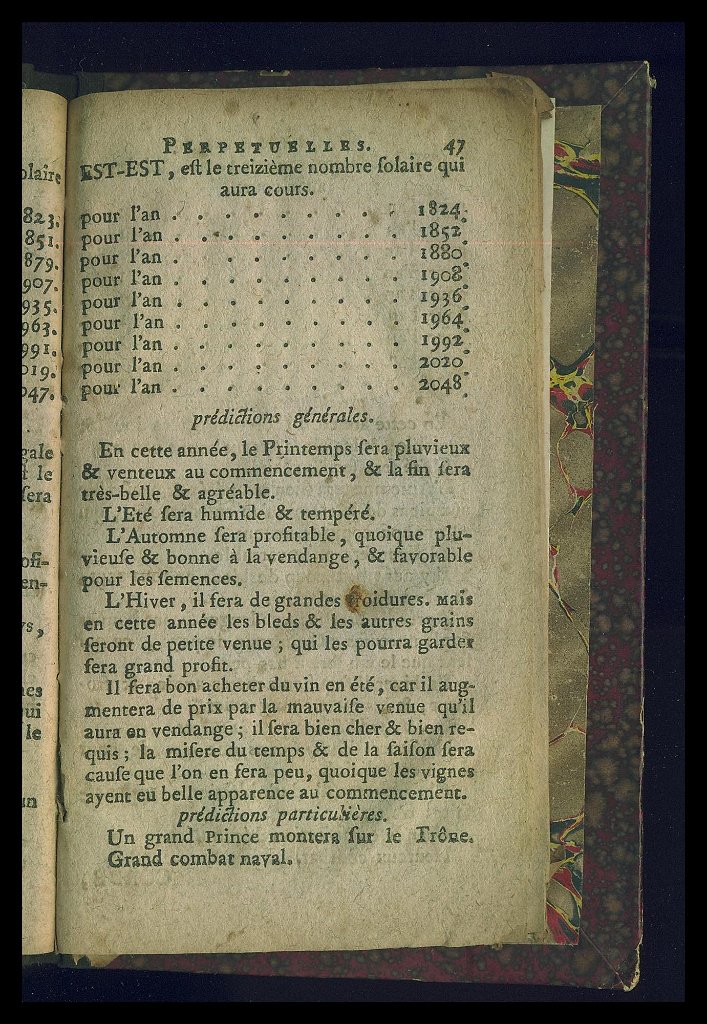 olaire
823.
851.
879.
907.
935.
963.
991.
019.
047.
gale
t le
sera
ofi-
en-
s,
nes
ui
le
un
PERPETUELLES. 47
EST-EST, eſt le treizième nombre ſolaire qui
aura cours.
pour l'an . . . . . . . . . 1824.
pour l'an . . . . . . . . . 1852.
pour l'an . . . . . . . . . 1880.
pour l'an . . . . . . . . . 1908.
pour l'an . . . . . . . . . 1936.
pour l'an . . . . . . . . . 1964.
pour l'an . . . . . . . . . 1992.
pour l'an . . . . . . . . . 2020.
pour l'an . . . . . . . . . 2048.
prédictions générales.
En cette année, le Printemps ſera pluvieux
& venteux au commencement, & la fin ſera
très-belle & agréable.
L'Eté ſera humide & tempéré.
L'Automne ſera profitable, quoique plu-
vieuſe & bonne à la vendange, & favorable
pour les ſemences.
L'Hiver, il fera de grandes froidures. Mais
en cette année les bleds & les autres grains
ſeront de petite venue ; qui les pourra garder
fera grand profit.
Il fera bon acheter du vin en été, car il aug-
mentera de prix par la mauvaiſe venue qu'il
aura en vendange ; il ſera bien cher & bien re-
quis ; la miſere du temps & de la ſaiſon ſera
cauſe que l'on en fera peu, quoique les vignes
ayent eu belle apparence au commencement.
prédictions particulières.
Un grand Prince montera ſur le Trône.
Grand combat naval.